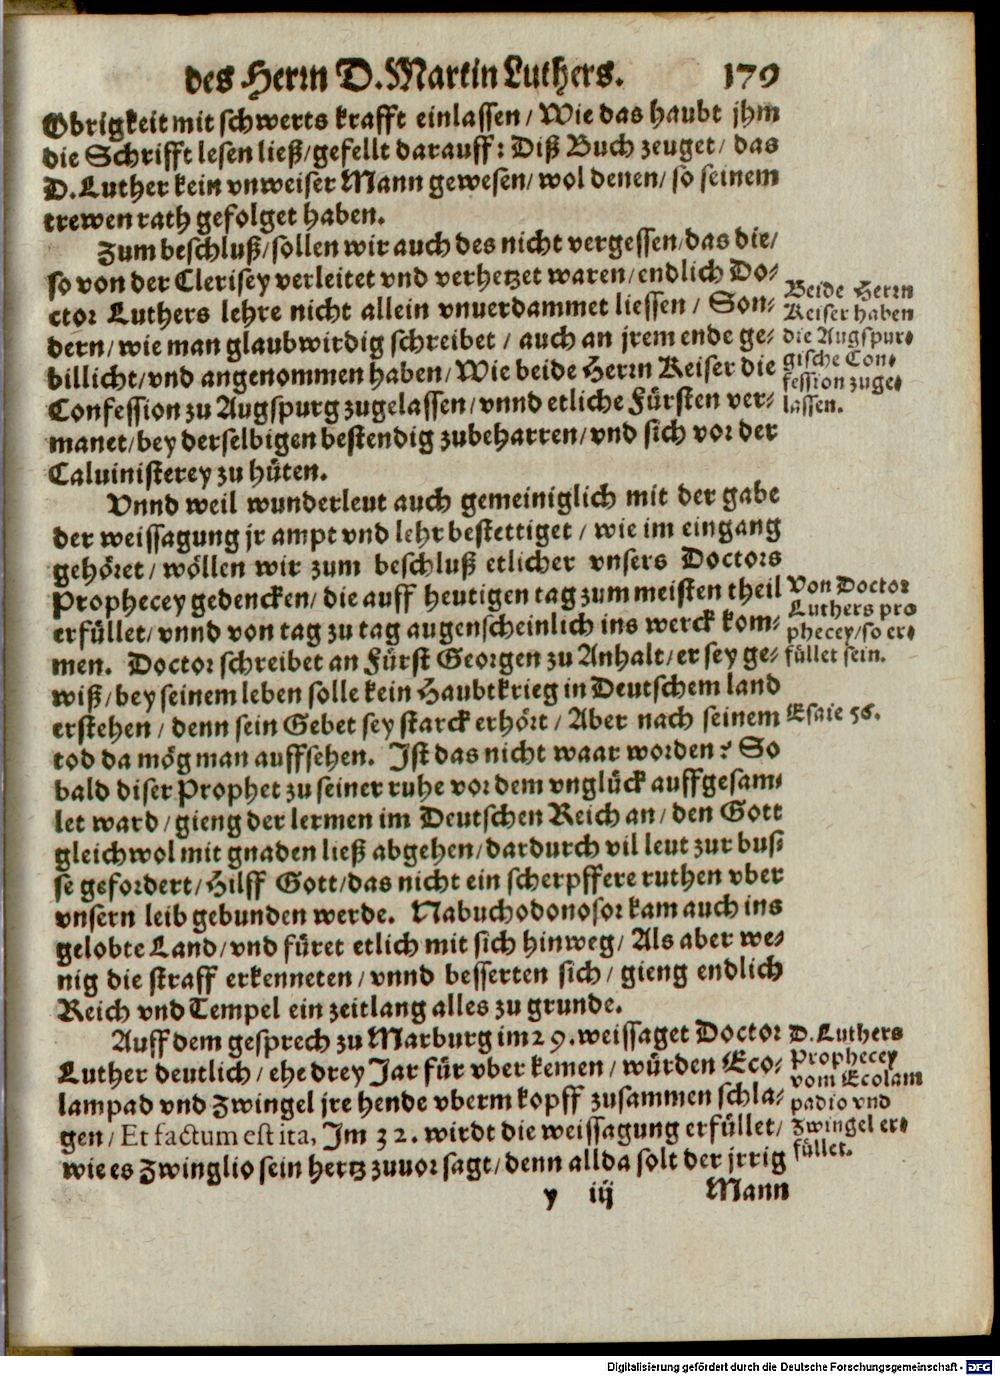 des Herrn D. Martin Luthers. 179
Obrigkeit mit schwerts krafft einlassen / Wie das haubt jhm
die Schrifft lesen ließ / gefellt darauff: Diß Buch zeuget / das
D. Luther kein vnweiser Mann gewesen / wol denen / so seinem
trewen rath gefolget haben.
Zum beschluß / sollen wir auch des nicht vergessen / das die /
so von der Clerisey verleitet vnd verhetzet waren / endlich Do-
ctor Luthers lehre nicht allein vnuerdammet liessen / Son-
dern / wie man glaubwirdig schreibet / auch an jrem ende ge-
billicht / vnd angenommen haben / Wie beide Herrn Keiser die
Confession zu Augspurg zugelassen / vnnd etliche Fürsten ver-
manet / bey derselbigen bestendig zubeharren / vnd sich vor der
Caluinisterey zu hüten.
Beide Herrn
Keiser haben
die Augspur-
gische Con-
fession zuge-
lassen.
Vnnd weil wunderleut auch gemeiniglich mit der gabe
der weissagung jr ampt vnd lehr bestettiget / wie im eingang
gehöret / wöllen wir zum beschluß etlicher vnsers Doctors
Prophecey gedencken / die auff heutigen tag zum meisten theil
erfüllet / vnnd von tag zu tag augenscheinlich ins werck kom-
men. Doctor schreibet an Fürst Georgen zu Anhalt / er sey ge-
wiß / bey seinem leben solle kein Haubtkrieg in Deutschem land
erstehen / denn sein Gebet sey starck erhört / Aber nach seinem
tod da mög man auffsehen. Ist das nicht waar worden? So
bald diser Prophet zu seiner ruhe vor dem vnglück auffgesam-
let ward / gieng der lermen im Deutschen Reich an / den Gott
gleichwol mit gnaden ließ abgehen / dardurch vil leut zur bus-
se gefordert / Hilff Gott / das nicht ein scherpffere ruthen vber
vnsern leib gebunden werde. Nabuchodonosor kam auch ins
gelobte Land / vnd füret etlich mit sich hinweg / Als aber we-
nig die straff erkenneten / vnnd besserten sich / gieng endlich
Reich vnd Tempel ein zeitlang alles zu grunde.
Von Doctor
Luthers pro
phecey / so er-
füllet sein.
Esaie 56.
Auff dem gesprech zu Marburg im 29. weissaget Doctor
Luther deutlich / ehe drey Jar für vber kemen / würden Eco-
lampad vnd Zwingel jre hende vberm kopff zusammen schla-
gen / Et factum est ita, Im 32. wirdt die weissagung erfüllet /
wie es Zwinglio sein hertz zuuor sagt / denn allda solt der jrrig
D. Luthers
Prophecey
vom Ecolam
padio vnd
Zwingel er-
füllet.
y iij Mann
Digitalisierung gefördert durch die Deutsche Forschungsgemeinschaft - DFG